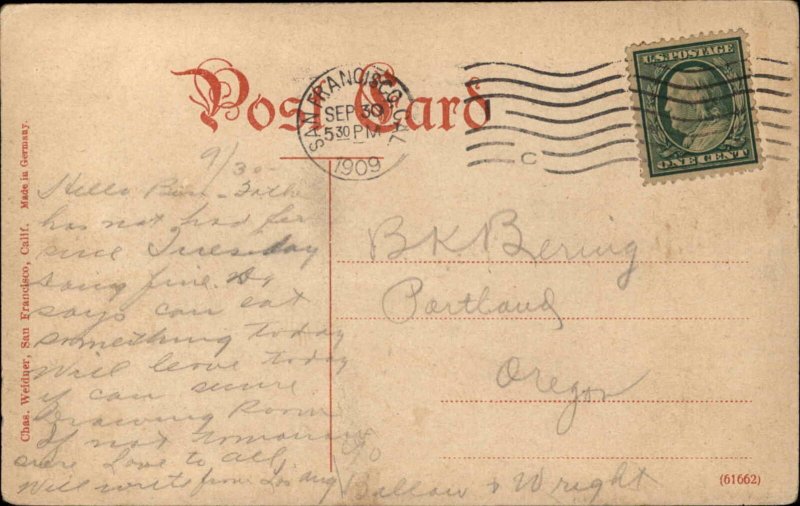 Post Card
SAN FRANCISCO, CAL.
SEP 30
5 30 PM
1909
C
U.S. POSTAGE
ONE CENT
Chas. Weidner, San Francisco, Calif. Made in Germany.
9/30-
Hello
has not had
since Tuesday
doing fine. He
says can eat
something today
Will leave today
if can secure
Drawing Room
If not tomorrow
sure Love to all
Will write from Los Ang
B K Bering
Portland
Oregon
c/o
Ballou & Wright
(61662)